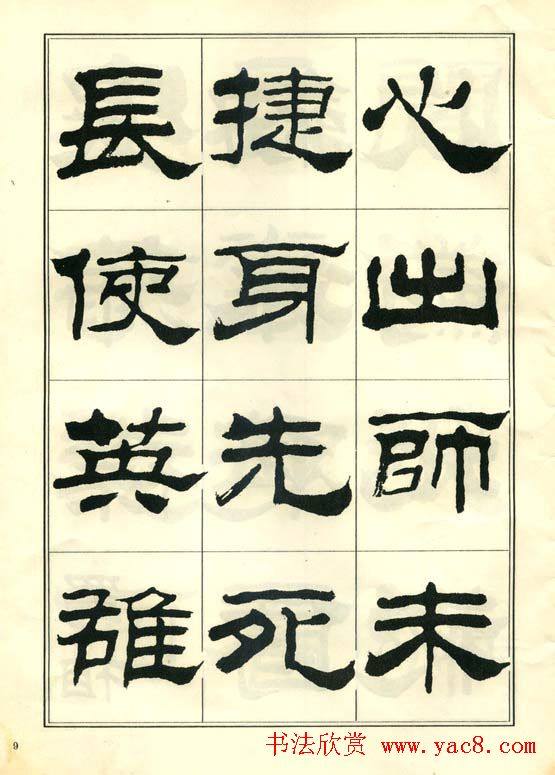 心出師未
捷身先死
長使英雄
9
书法欣赏 www.yac8.com